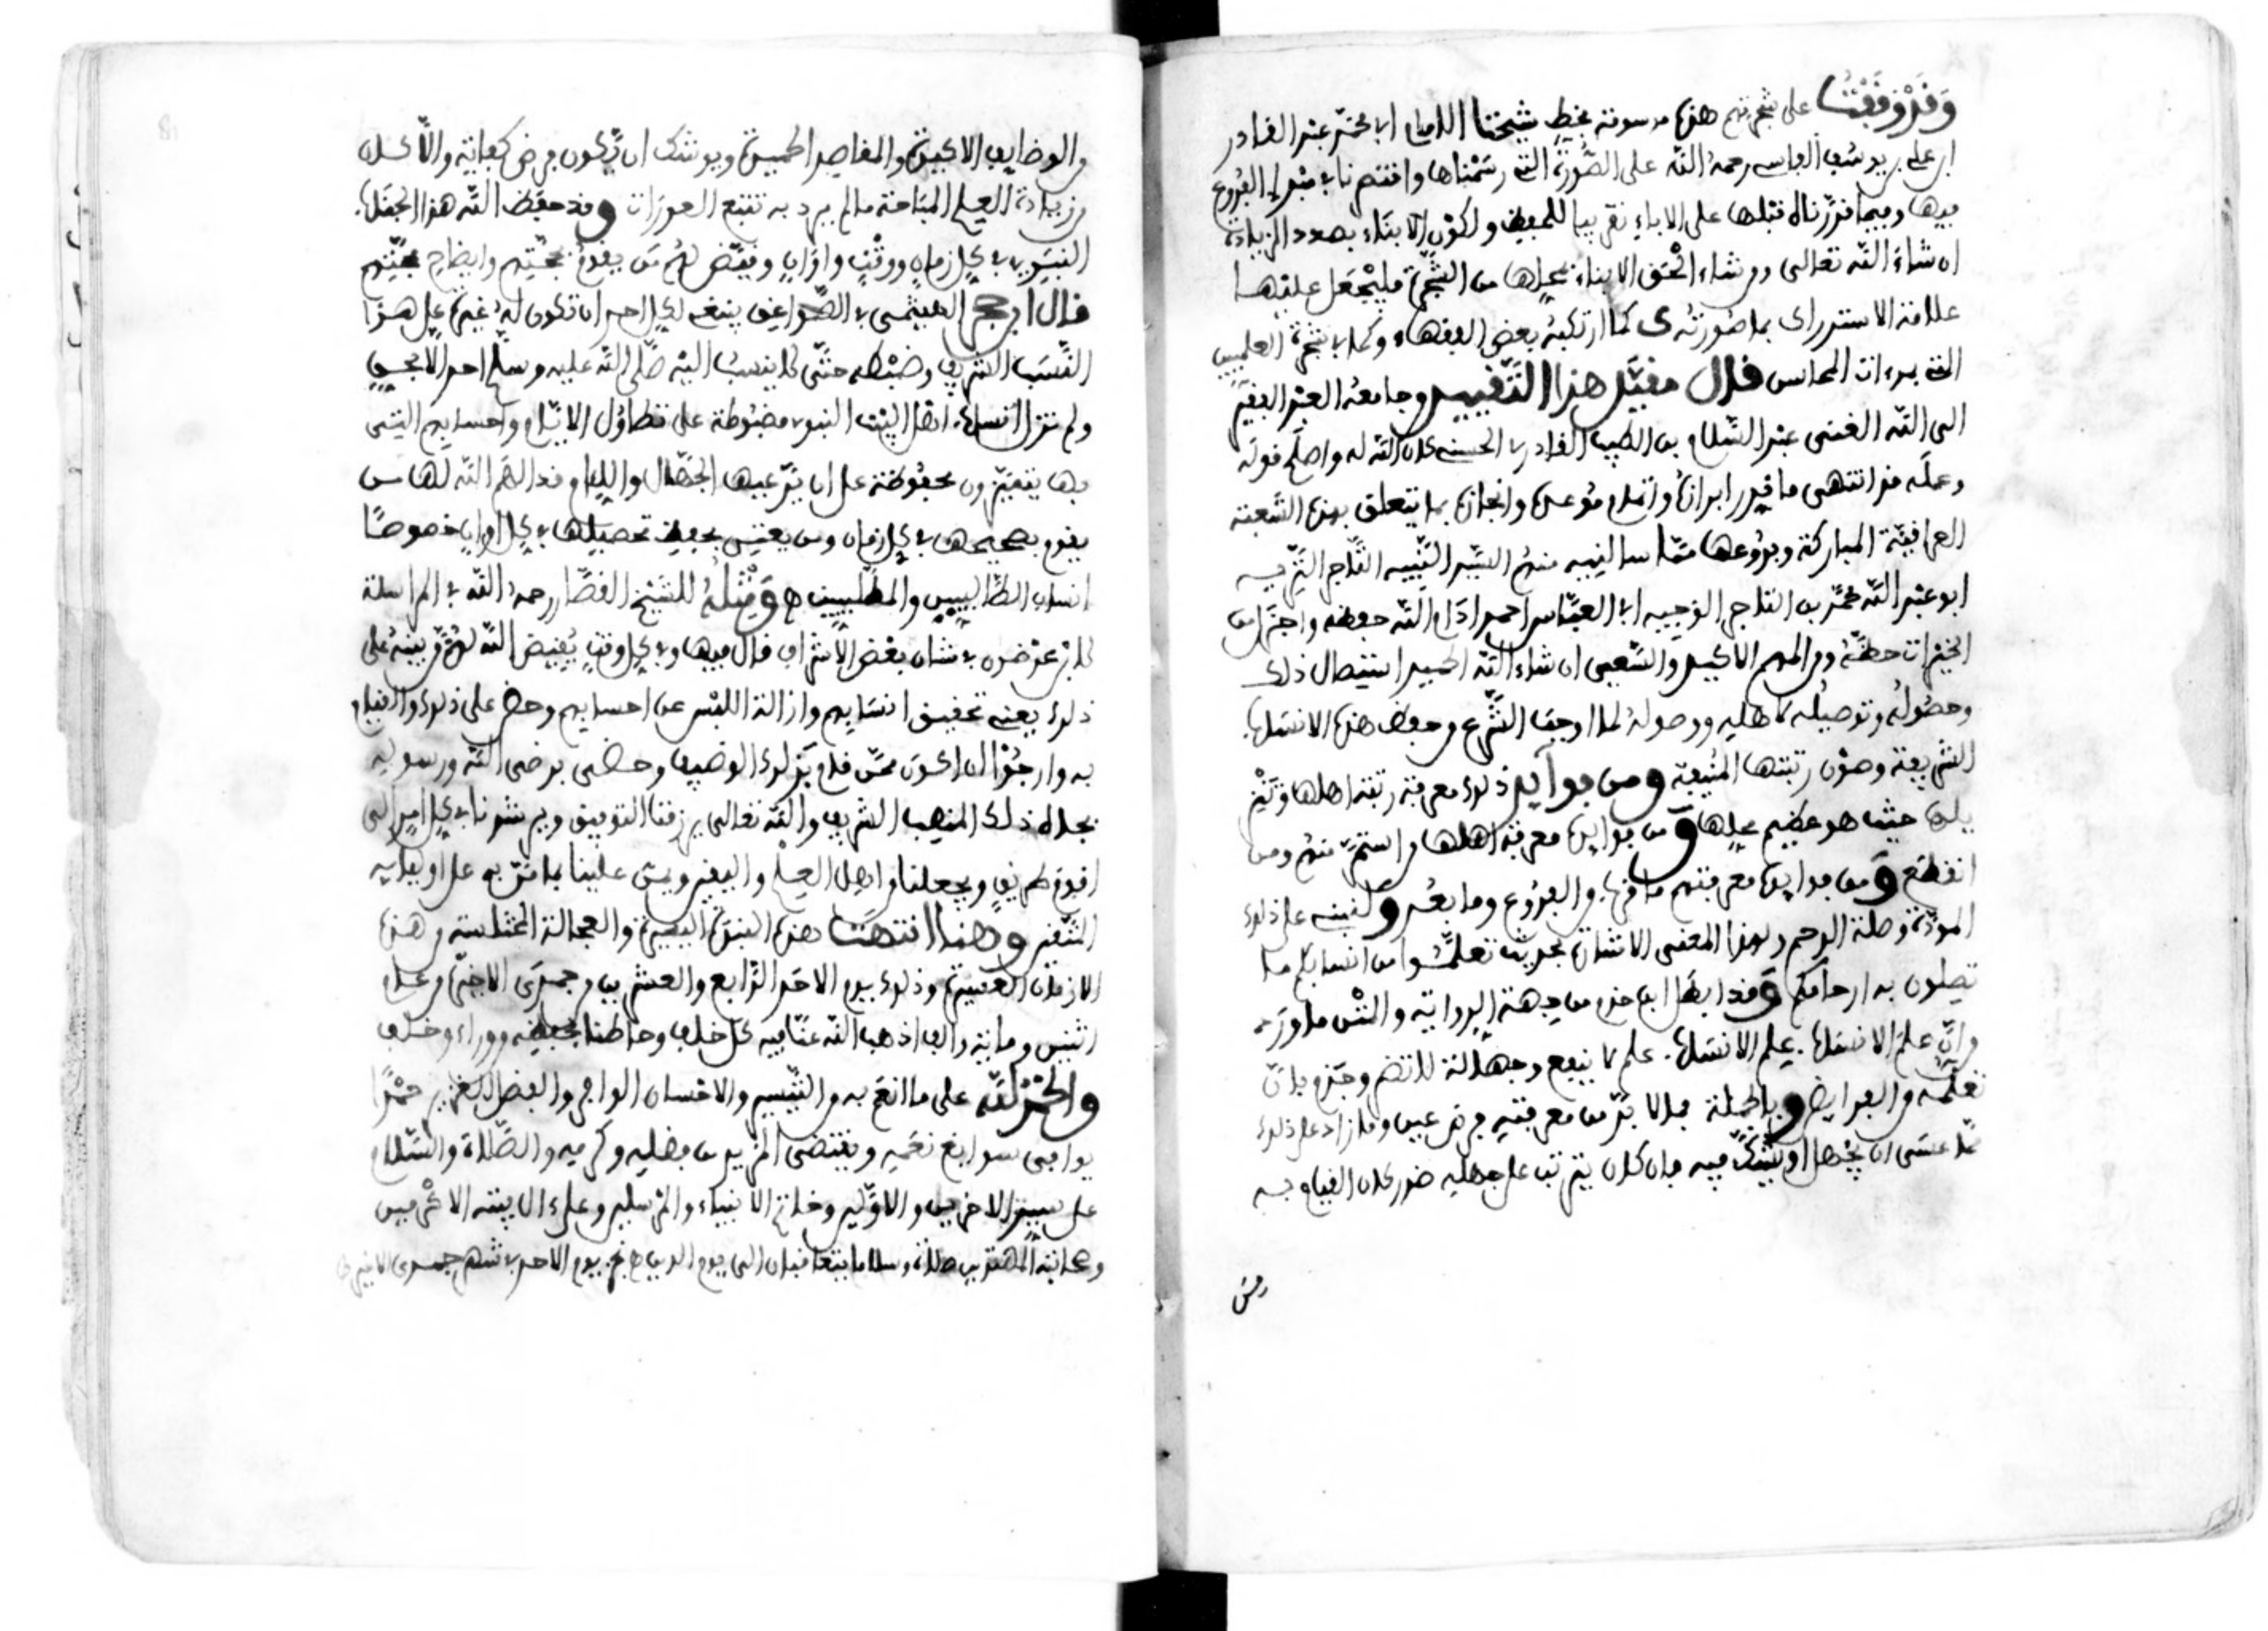 وقد وقفت على شجرتهم هذه مرسومة بخط شيخنا الامام ابي محمد عبد القادر
ابن علي بن يوسف الفاسي رحمه الله على الصورة التي رسمناها واقتصرنا في مبدإ الفروع
فيها وفيما قررناه قبلها على الاباء تقريبا للحفظ ولكون الابناء بصدد الزيادة
ان شاء الله تعالى ومن شاء الحق الابناء بمحلها من الشجرة فليجعل عليها
علامة الاستدراك بما صورته كما ارتكبه بعض الفقهاء في شجرة العلميين
ذات المحاسن قال مقيد هذا التقييد وجامعه العبد الفقير
الى الله الغني عبد السلام بن الطيب القادري الحسني كان الله له واصلح قوله
وعمله قد انتهى ما قدر ابرازه واتمام موعده وانجازه بما يتعلق بهذه الشعبة
العراقية المباركة وفروعها مما سالنيه منهم السيد النبيه التاجر النزيه
ابو عبد الله محمد بن التاجر الوجيه ابي العباس احمد ادام الله حفظه واجزل من
الخيرات حظه ومن المهم الاكيد والسعي ان شاء الله الحميد استيصال ذلك
وحصوله وتوصيله لاهله ووصوله لما اوجب الشرع من حفظ هذه الانساب
الشريفة وصون رتبتها المنيفة ومن فوايد ذلك معرفة رتبة اهلها وتمييز
حيث هو عظيم محلها ومن فوايده معرفة اهلها من استمر منهم ومن
انقطع ومن فوايده معرفتهم ما قرب من الفروع وما بعد على ذلك
المودة وصلة الرحم ولهذا المعنى الاشارة بحديث تعلموا من انسابكم ما
تصلون به ارحامكم وقد ابطل ابن حزم من جهة الرواية والنص ما ورد
من ان علم الانساب علم لا ينفع وجهالة لا تضر وجزم بان
تعلمه من الفرايض وبالجملة فما لا بد من معرفته فرض عين وما زاد على ذلك
مما عسى ان يجهل او يشك فيه فان كان يترتب على جهله ضرر كان القيام به
من
من الوضايف الاكيدة والمقاصد الحميدة ويوشك ان يكون فرض كفاية والا كان
من زيادة العلم المباحة ما لم يرد به تتبع العورات وقد حفظ الله هذا الجناب
النبوي في كل زمان ووقت واوان وقيض لهم من يقوم بحجتهم وايضاح محجتهم
قال ابن حجر الهيثمي في الصواعق ينبغي لكل احد ان تكون له غيرة على هذا
النسب الشريف وضبطه حتى لا ينتسب اليه صلى الله عليه وسلم احد الا بحق
ولم تزل انساب اهل البيت النبوي مضبوطة على تطاول الايام واحسابهم التي
بها يتميزون محفوظة عن ان يدعيها الجهال واللئام وقد الهم الله لها من
يقوم بتصحيحها في كل زمان ومن يعتني بحفظ تحصيلها في كل اوان خصوصا
انساب الطالبيين والمطلبيين ه ومثله للشيخ القصار رحمه الله في المراسلة
لابن عرضون في شان بعض الاشراف قال فيها وفي كل وقت يقيض الله لهم من بينه على
ذلك يعني تحقيق انسابهم وازالة اللبس عن احسابهم وحض على ذلك والقيام
به وارجو ان اكون ممن قام بذلك الوضيف وحظي برضى الله ورسوله
بجاه ذلك المنصب الشريف والله تعالى يرزقنا التوفيق ويرشدنا في كل امر الى
اقوم طريق ويجعلنا من اهل العلم واليقين ويمن علينا بما من به على اوليايه
المتقين وهنا انتهت هذه النبذة اليسيرة والعجالة المختلسة من هذه
الازمان العسيرة وذلك يوم الاحد الرابع والعشرين من جمدى الاخيرة من عام
اثنين ومائة والف اذهب الله عنا فيه كل خلف وحاطنا بحفظه من وراء وخلف
والحمد لله على ما انعم به من التيسير والاحسان الوافر والفضل الغزير حمدا
يوافي سوابغ نعمه ويقتضي المزيد من فضله وكرمه والصلاة والسلام
على سيد الاخرين والاولين وخاتم الانبياء والمرسلين وعلى ال بيته الاكرمين
وصحابته المهتدين صلاة وسلاما يتعاقبان الى يوم الدين ه يوم الاحد في شهر جمدى الاخيرة